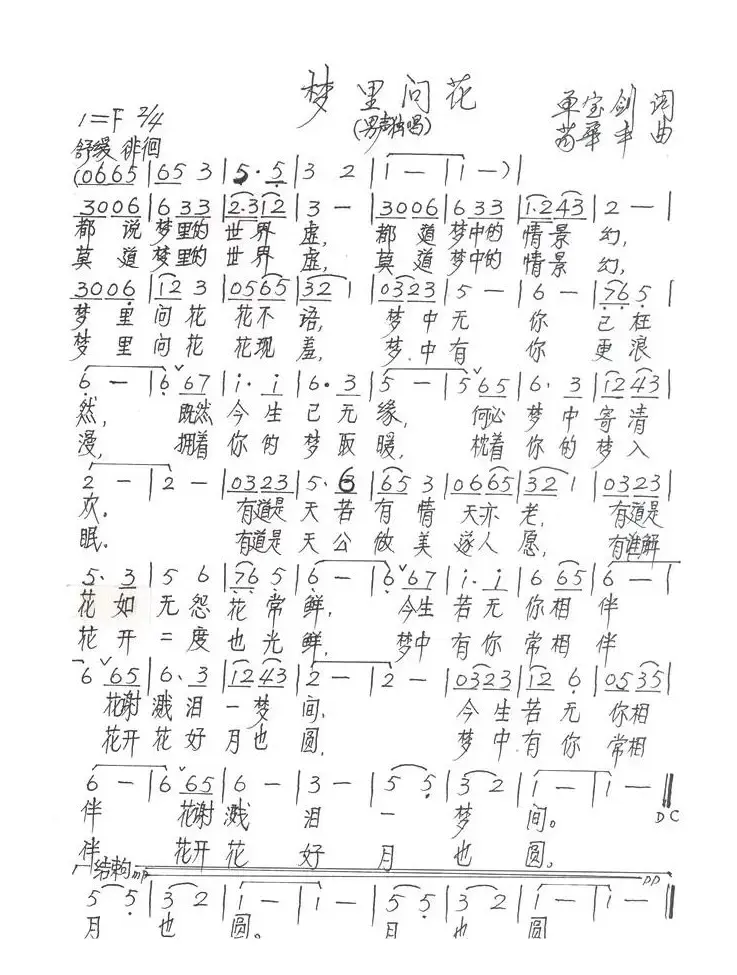 梦里问花
(男声独唱)
单宝剑 词
曲
1=F 2/4
舒缓 徘徊
(0665 | 65 3 | 5·5 | 3 2 | 1 — | 1 —) |
3006 | 6 33 | 2·312 | 3 — | 3006 | 6 33 | 1·243 | 2 — |
都说梦里的世界虚, 都道梦中的情景幻,
莫道梦里的世界虚, 莫道梦中的情景幻,
3006 | 12 3 | 0565 | 32 1 | 0323 | 5 — | 6 — | 76 5 |
梦里问花 花不语, 梦中无你 已枉
梦里问花 花现羞, 梦中有你 更浪
6 — | 6 67 | i· i | 6· 3 | 5 — | 5 65 | 6· 3 | 12 43 |
然, 既然今生已无缘, 何必梦中寄清
漫, 拥着你的梦取暖, 枕着你的梦入
2 — | 2 — | 0323 | 5· 6 | 65 3 | 0665 | 32 1 | 0323 |
欢。 有道是天若有情天亦老, 有道是
眠。 有道是天公做美遂人愿, 有谁解
5· 3 | 5 6 | 76 5 | 6 — | 6 67 | i· i | 6 65 | 6 — |
花如无怨花常鲜, 今生若无你相伴
花开二度也光鲜, 梦中有你常相伴
6 65 | 6· 3 | 12 43 | 2 — | 2 — | 0323 | 12 6 | 0535 |
花谢溅泪一梦间, 今生若无你相
花开花好月也圆, 梦中有你常相
6 — | 6 65 | 6 — | 3 — | 5 5 | 3 2 | 1 — | 1 — ‖
伴 花谢溅泪一梦间。 DC
伴 花开花好月也圆。
结束句 mp pp
5 5 | 3 2 | 1 — | 1 — | 5 5 | 3 2 | 1 — | 1 — ‖
月也圆。 月也圆